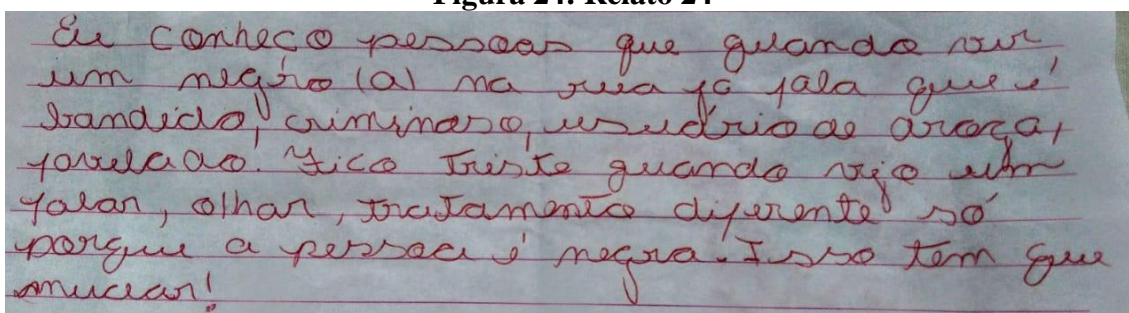 Figura 24: Relato 24
Eu conheço pessoas que quando vir
um negro (a) na rua já fala que é
bandido, criminoso, usuário de droga,
favelado. Fico triste quando vejo um
falar, olhar, tratamento diferente só
porque a pessoa é negra. Isso tem que
mudar!